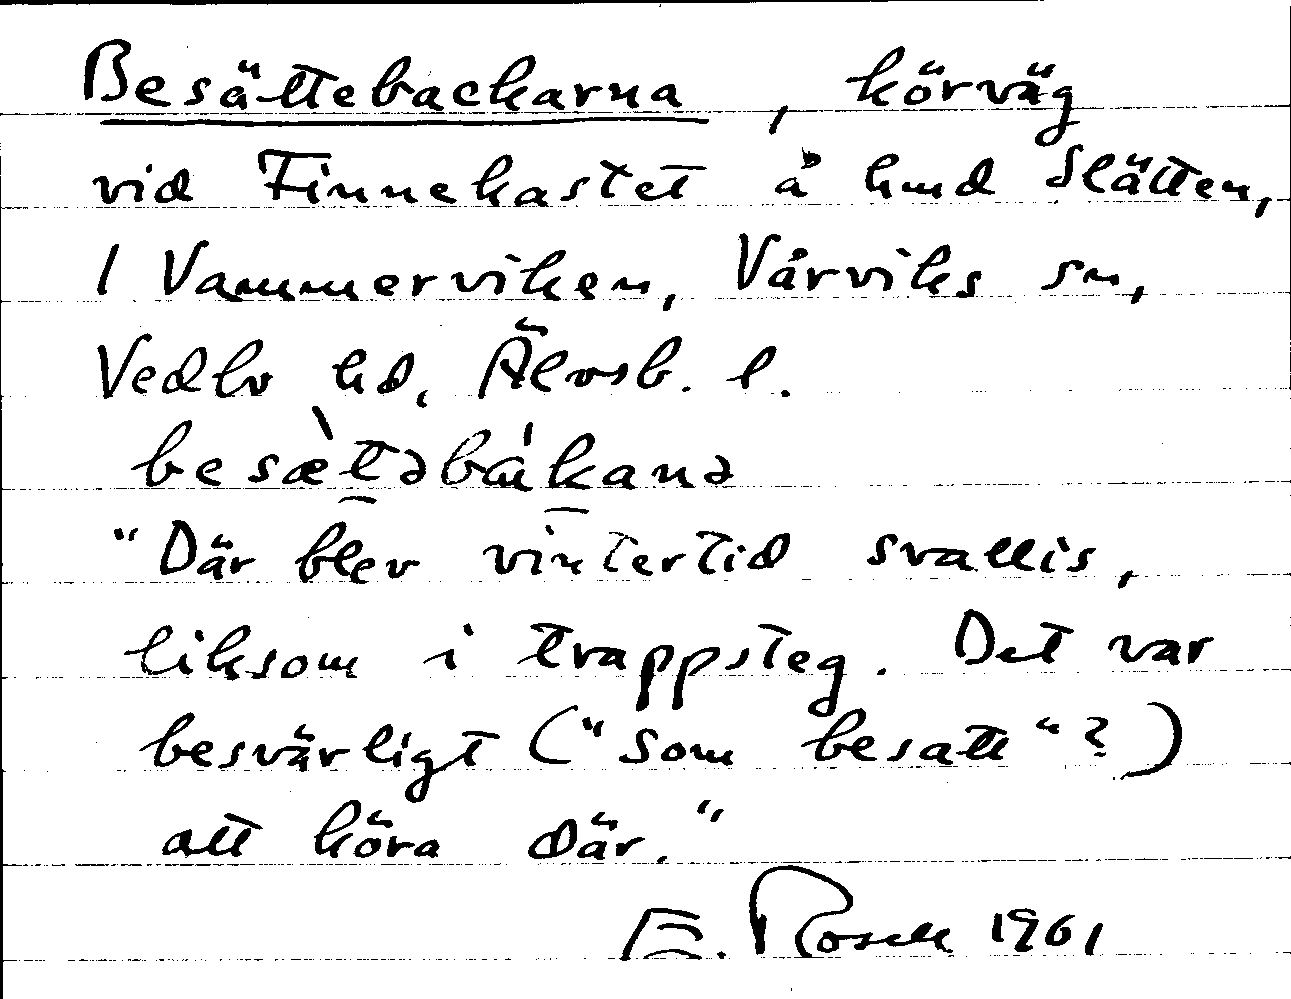 Besättebackarna, körväg
vid Finnekastet å hmd Slätten,
1 Vammerviken, Vårviks sn,
Vedbo hd, Älvsb. l.
besæ̀t̲əbákanə
"Där blev vintertid svallis,
liksom i trappsteg. Det var
besvärligt ("som besatt"?)
att köra där."
E. Rosell 1961